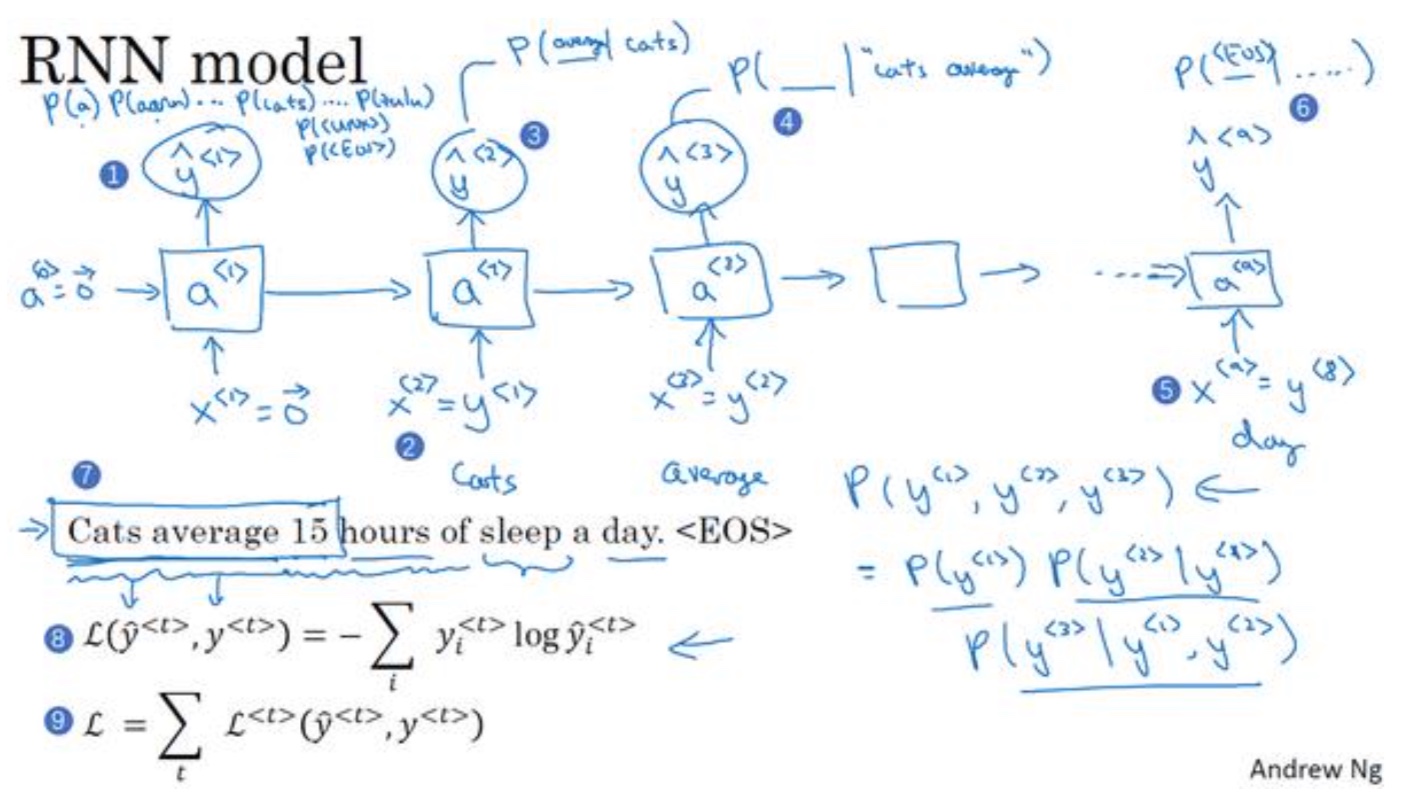 RNN model
P(a) P(aaron) ... P(cats) .... P(zulu)
P(<UNK>)
P(<EOS>)
P(average | cats)
P(___ | "cats average")
P(<EOS> | .....)
1
ŷ<1>
3
ŷ<2>
ŷ<3>
4
6
ŷ<9>
a<0> = 0⃗
a<1>
a<2>
a<3>
a<9>
x<1> = 0⃗
x<2> = y<1>
x<3> = y<2>
5 x<9> = y<8>
2
Cats
average
day
7
Cats average 15 hours of sleep a day. <EOS>
P(y<1>, y<2>, y<3>) ←
= P(y<1>) P(y<2> | y<1>)
P(y<3> | y<1>, y<2>)
8 ℒ(ŷ<t>, y<t>) = − ∑ᵢ yᵢ<t> log ŷᵢ<t>
9 ℒ = ∑ₜ ℒ<t>(ŷ<t>, y<t>)
Andrew Ng